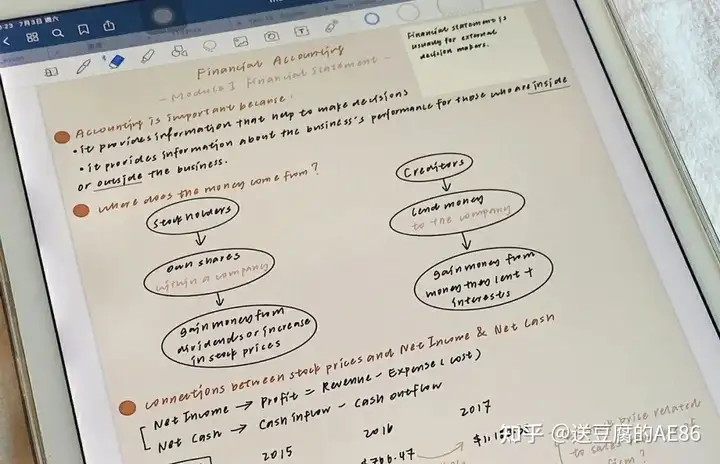 7月3日 週六
Financial Accounting
- Module 1 Financial Statement -
Financial statement is
usually for external
decision makers.
Accounting is important because:
• it provides information that help to make decisions
• it provides information about the business's performance for those who are inside
or outside the business.
where does the money come from?
Stock holders
own shares
within a company
gain money from
dividends or increase
in stock prices
Creditors
lend money
to the company
gain money from
money they lent +
interests
connections between stock prices and Net Income & Net Cash
Net Income → Profit = Revenue - Expense (cost)
Net Cash → Cash inflow - Cash outflow
2015
2016
2017
$766.47
price related
to sales
知乎 @送豆腐的AE86